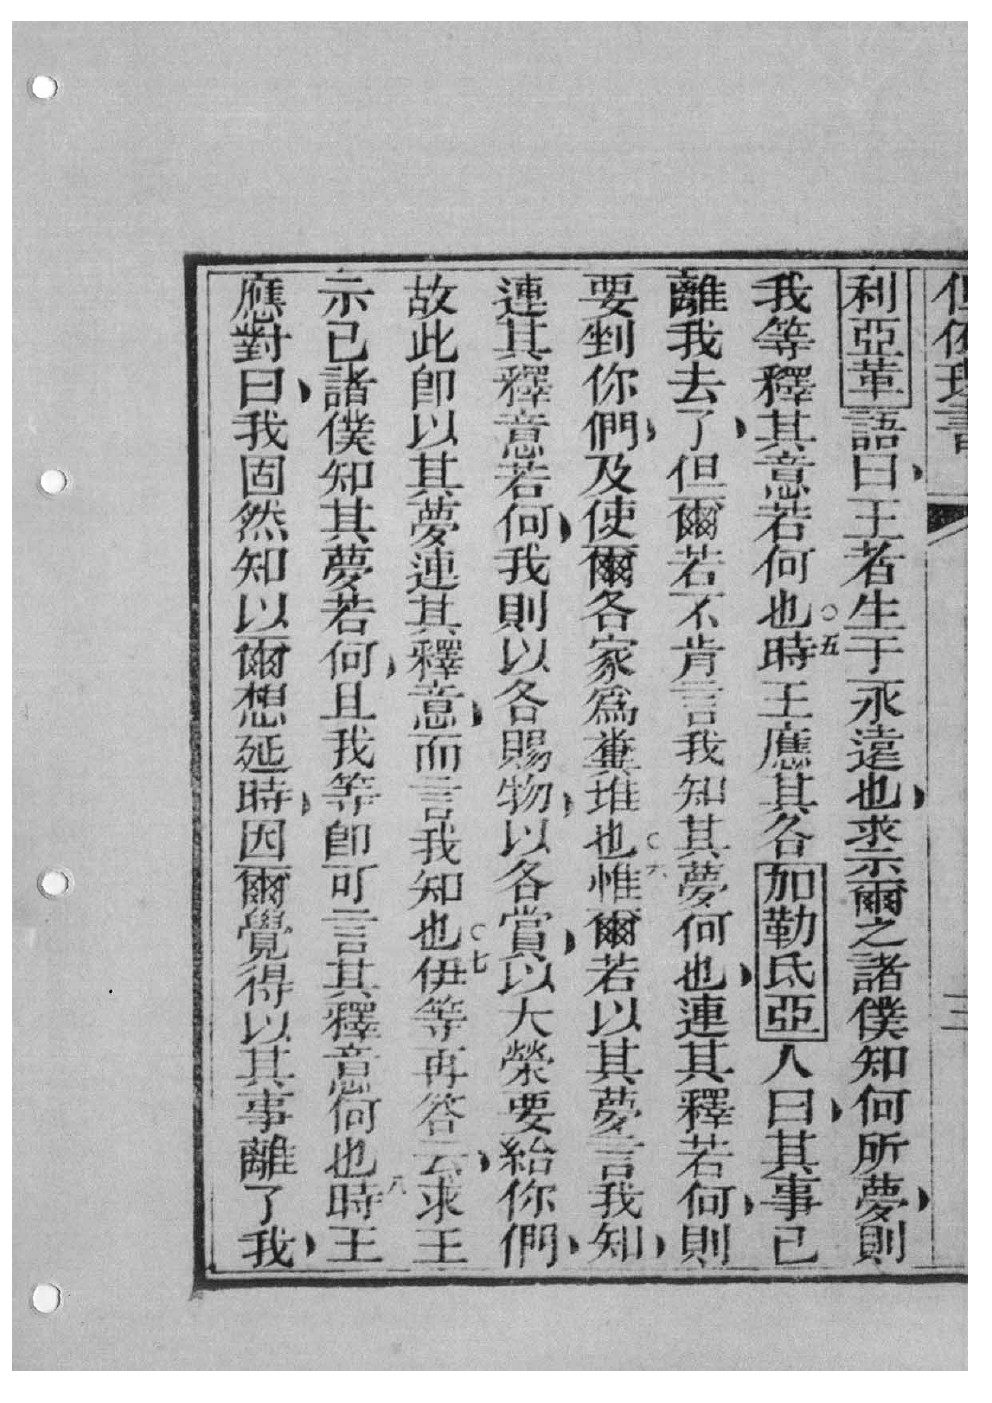 但依理書
三
利亞輩語曰王者生于永遠也求示爾之諸僕知何所夢則
我等釋其意若何也○五時王應其各加勒氐亞人曰其事已
離我去了但爾若不肯言我知其夢何也連其釋若何則
要剉你們及使爾各家為糞堆也○六惟爾若以其夢言我知
連其釋意若何我則以各賜物以各賞以大榮要給你們
故此卽以其夢連其釋意而言我知也○七伊等再答云求王
示已諸僕知其夢若何且我等卽可言其釋意何也八時王
應對曰我固然知以爾想延時因爾覺得以其事離了我